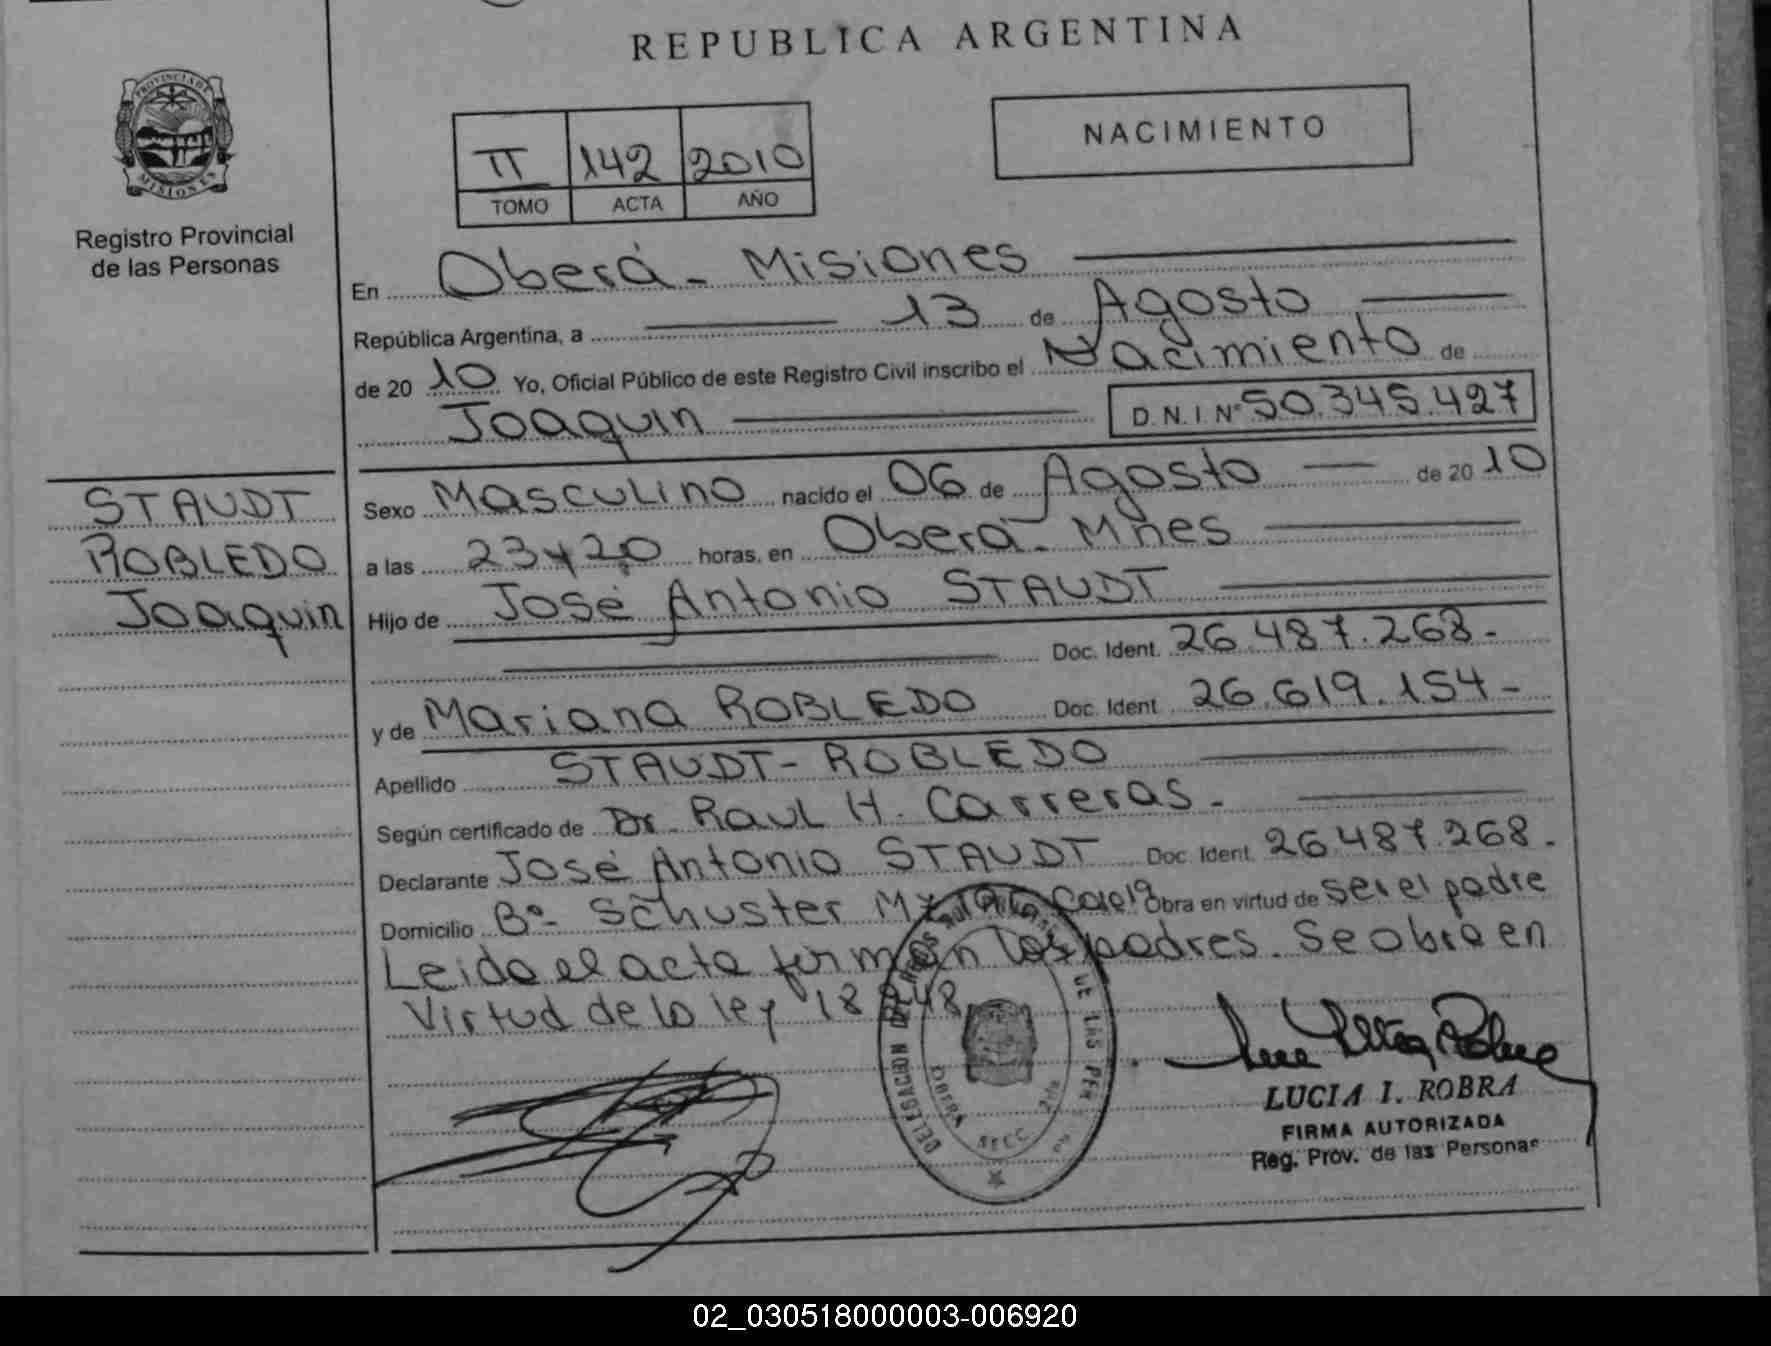 REPUBLICA ARGENTINA
PROVINCIA DE
MISIONES
Registro Provincial
de las Personas
II 142 2010
TOMO ACTA AÑO
NACIMIENTO
En Oberá - Misiones
República Argentina, a 13 de Agosto
de 20 10 Yo, Oficial Público de este Registro Civil inscribo el Nacimiento de
Joaquin D.N.I. Nº 50.345.427
STAUDT
ROBLEDO
Joaquin
Sexo Masculino nacido el 06 de Agosto de 20 10
a las 23 y 20 horas, en Oberá - Mnes
Hijo de José Antonio STAUDT
Doc. Ident. 26.487.268.-
y de Mariana ROBLEDO Doc. Ident. 26.619.154-
Apellido STAUDT - ROBLEDO
Según certificado de Dr. Raul H. Carreras.-
Declarante José Antonio STAUDT Doc. Ident. 26.487.268.-
Domicilio Bº Schuster Obra en virtud de ser el padre
Leida el acta firman los padres. Se obra en
Virtud de la ley 18.248
DELEGACION DE LAS PER
OBERA
LUCIA I. ROBRA
FIRMA AUTORIZADA
Reg. Prov. de las Personas
02_030518000003-006920